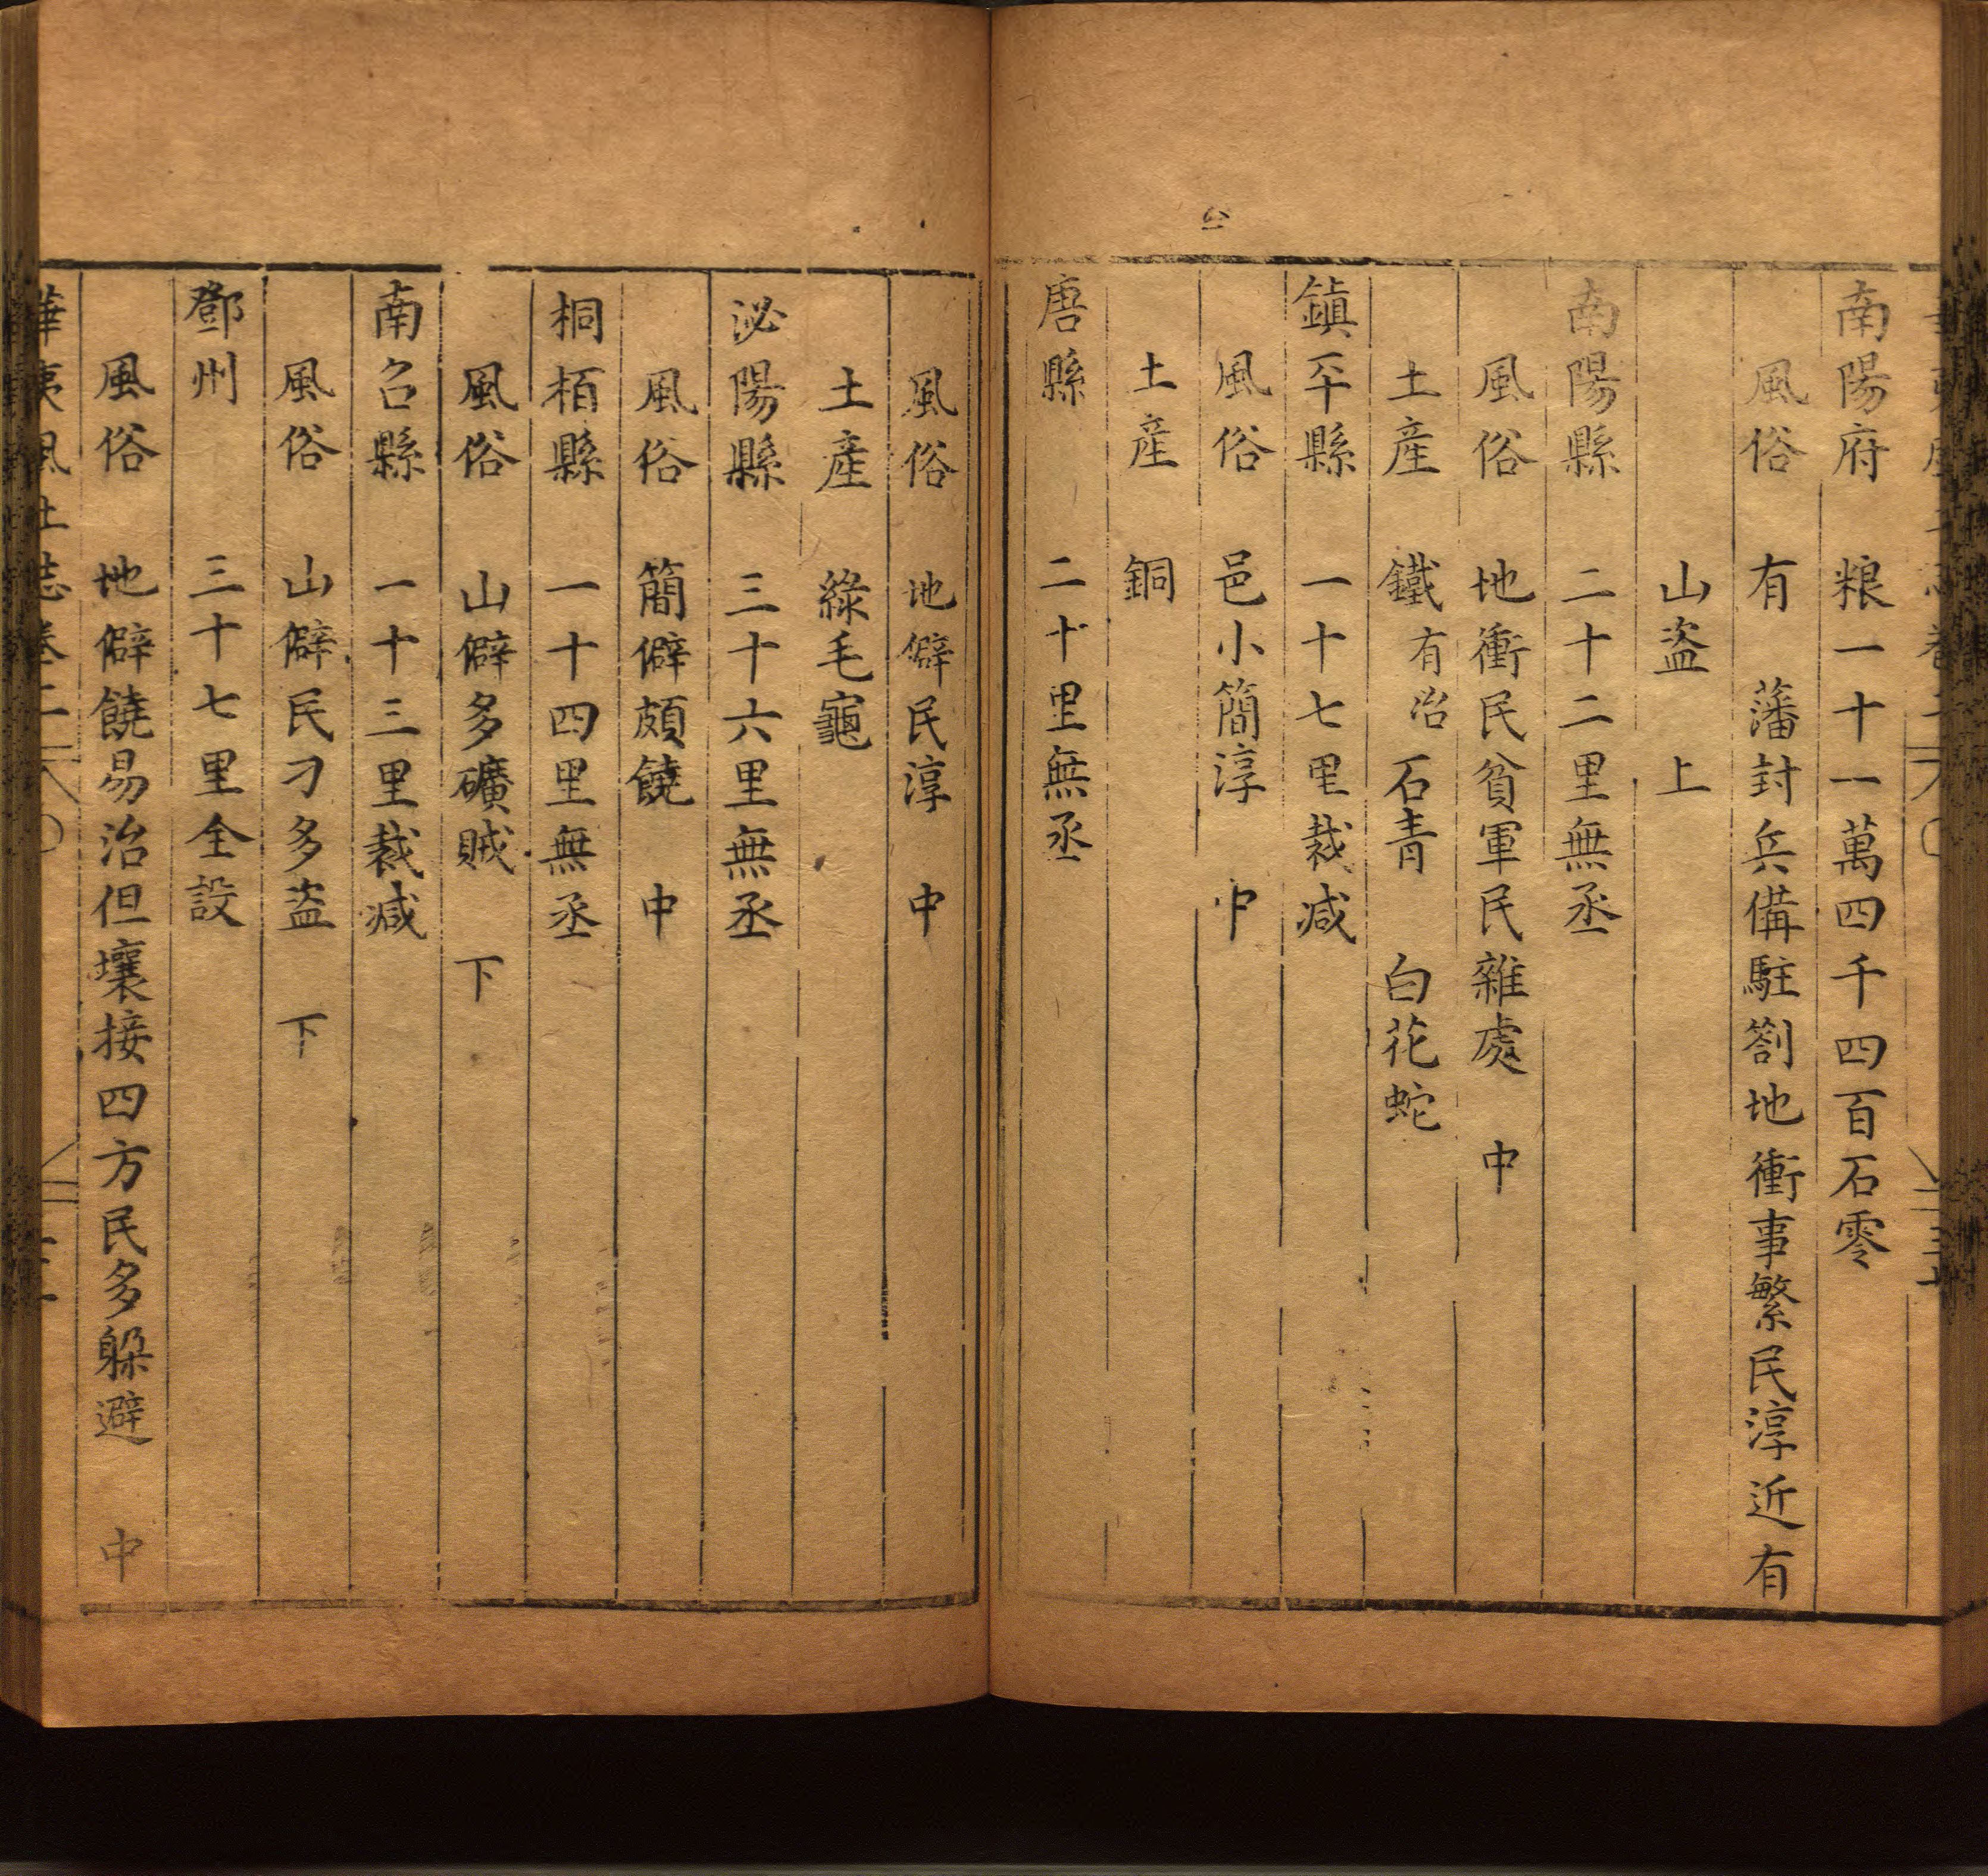 南陽府　粮一十一萬四千四百石零
風俗　有　藩封兵備駐劄地衝事繁民淳近有
山盗　上
南陽縣　二十二里無丞
風俗　地衝民貧軍民雜處　中
土産　鐵有冶　石青　白花蛇
鎮平縣　一十七里裁减
風俗　邑小簡淳　中
土産　銅
唐縣　二十里無丞
風俗　地僻民淳　中
土産　綠毛龜
泌陽縣　三十六里無丞
風俗　簡僻頗饒　中
桐栢縣　一十四里無丞
風俗　山僻多礦贼　下
南召縣　一十三里裁减
風俗　山僻民刁多盗　下
鄧州　三十七里全設
風俗　地僻饒易治但壤接四方民多躲避　中
華夷風土誌卷二